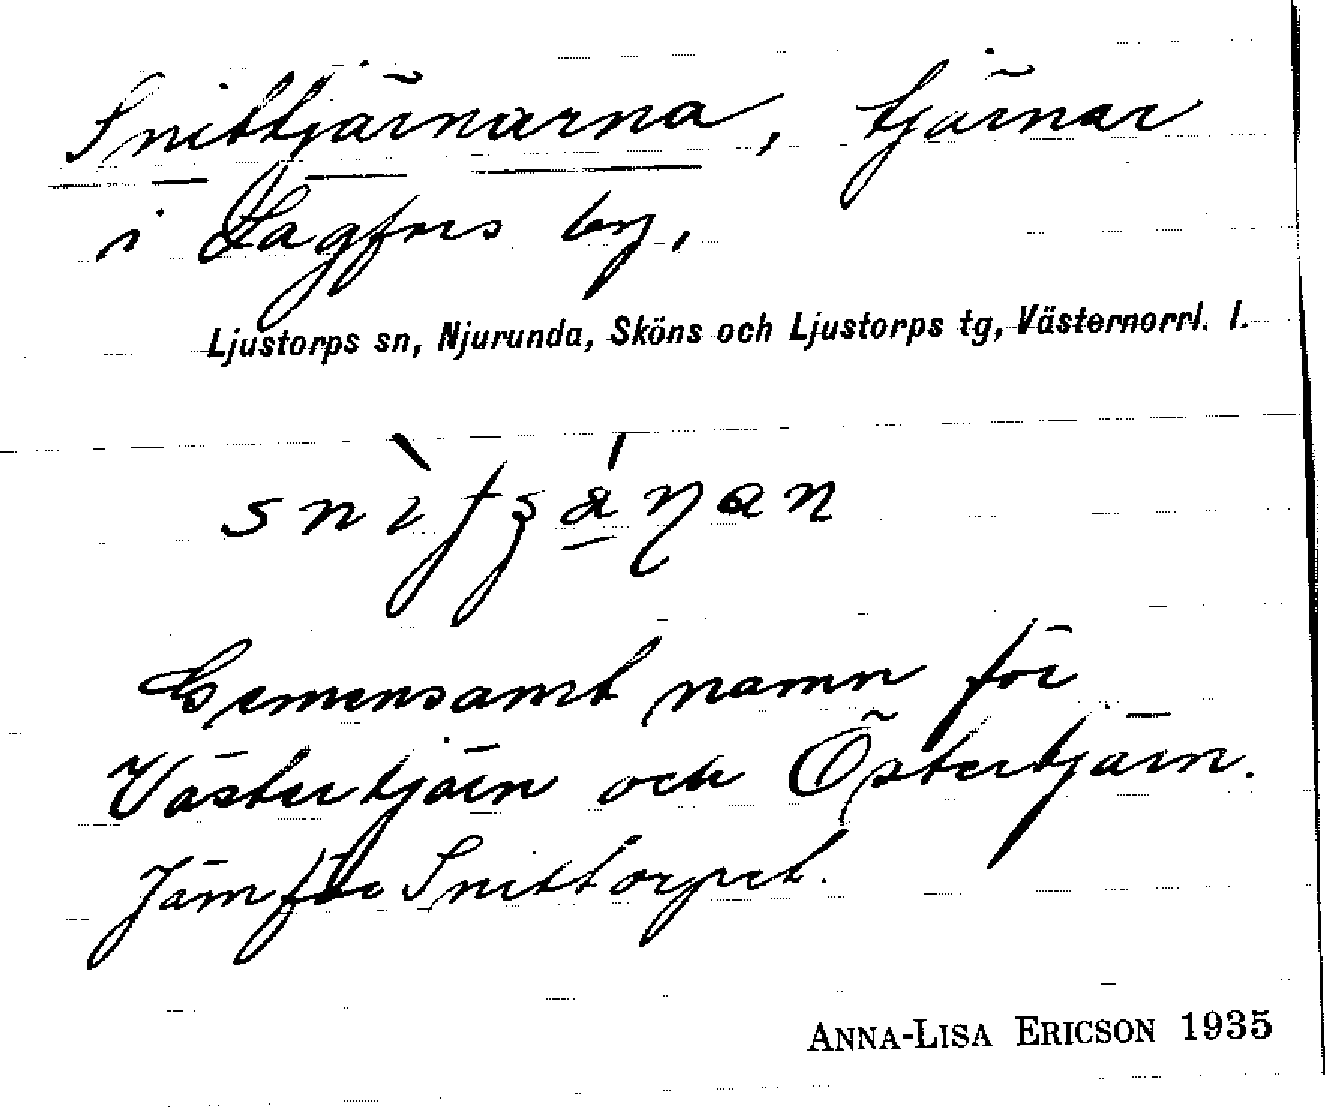 Snittjärnarna, tjärnar
i Lagfors by,
Ljustorps sn, Njurunda, Sköns och Ljustorps tg, Västernorrl. l.
Gemensamt namn för
Västertjärn och Östertjärn.
Jämför Snittorpet.
ANNA-LISA ERICSON 1935